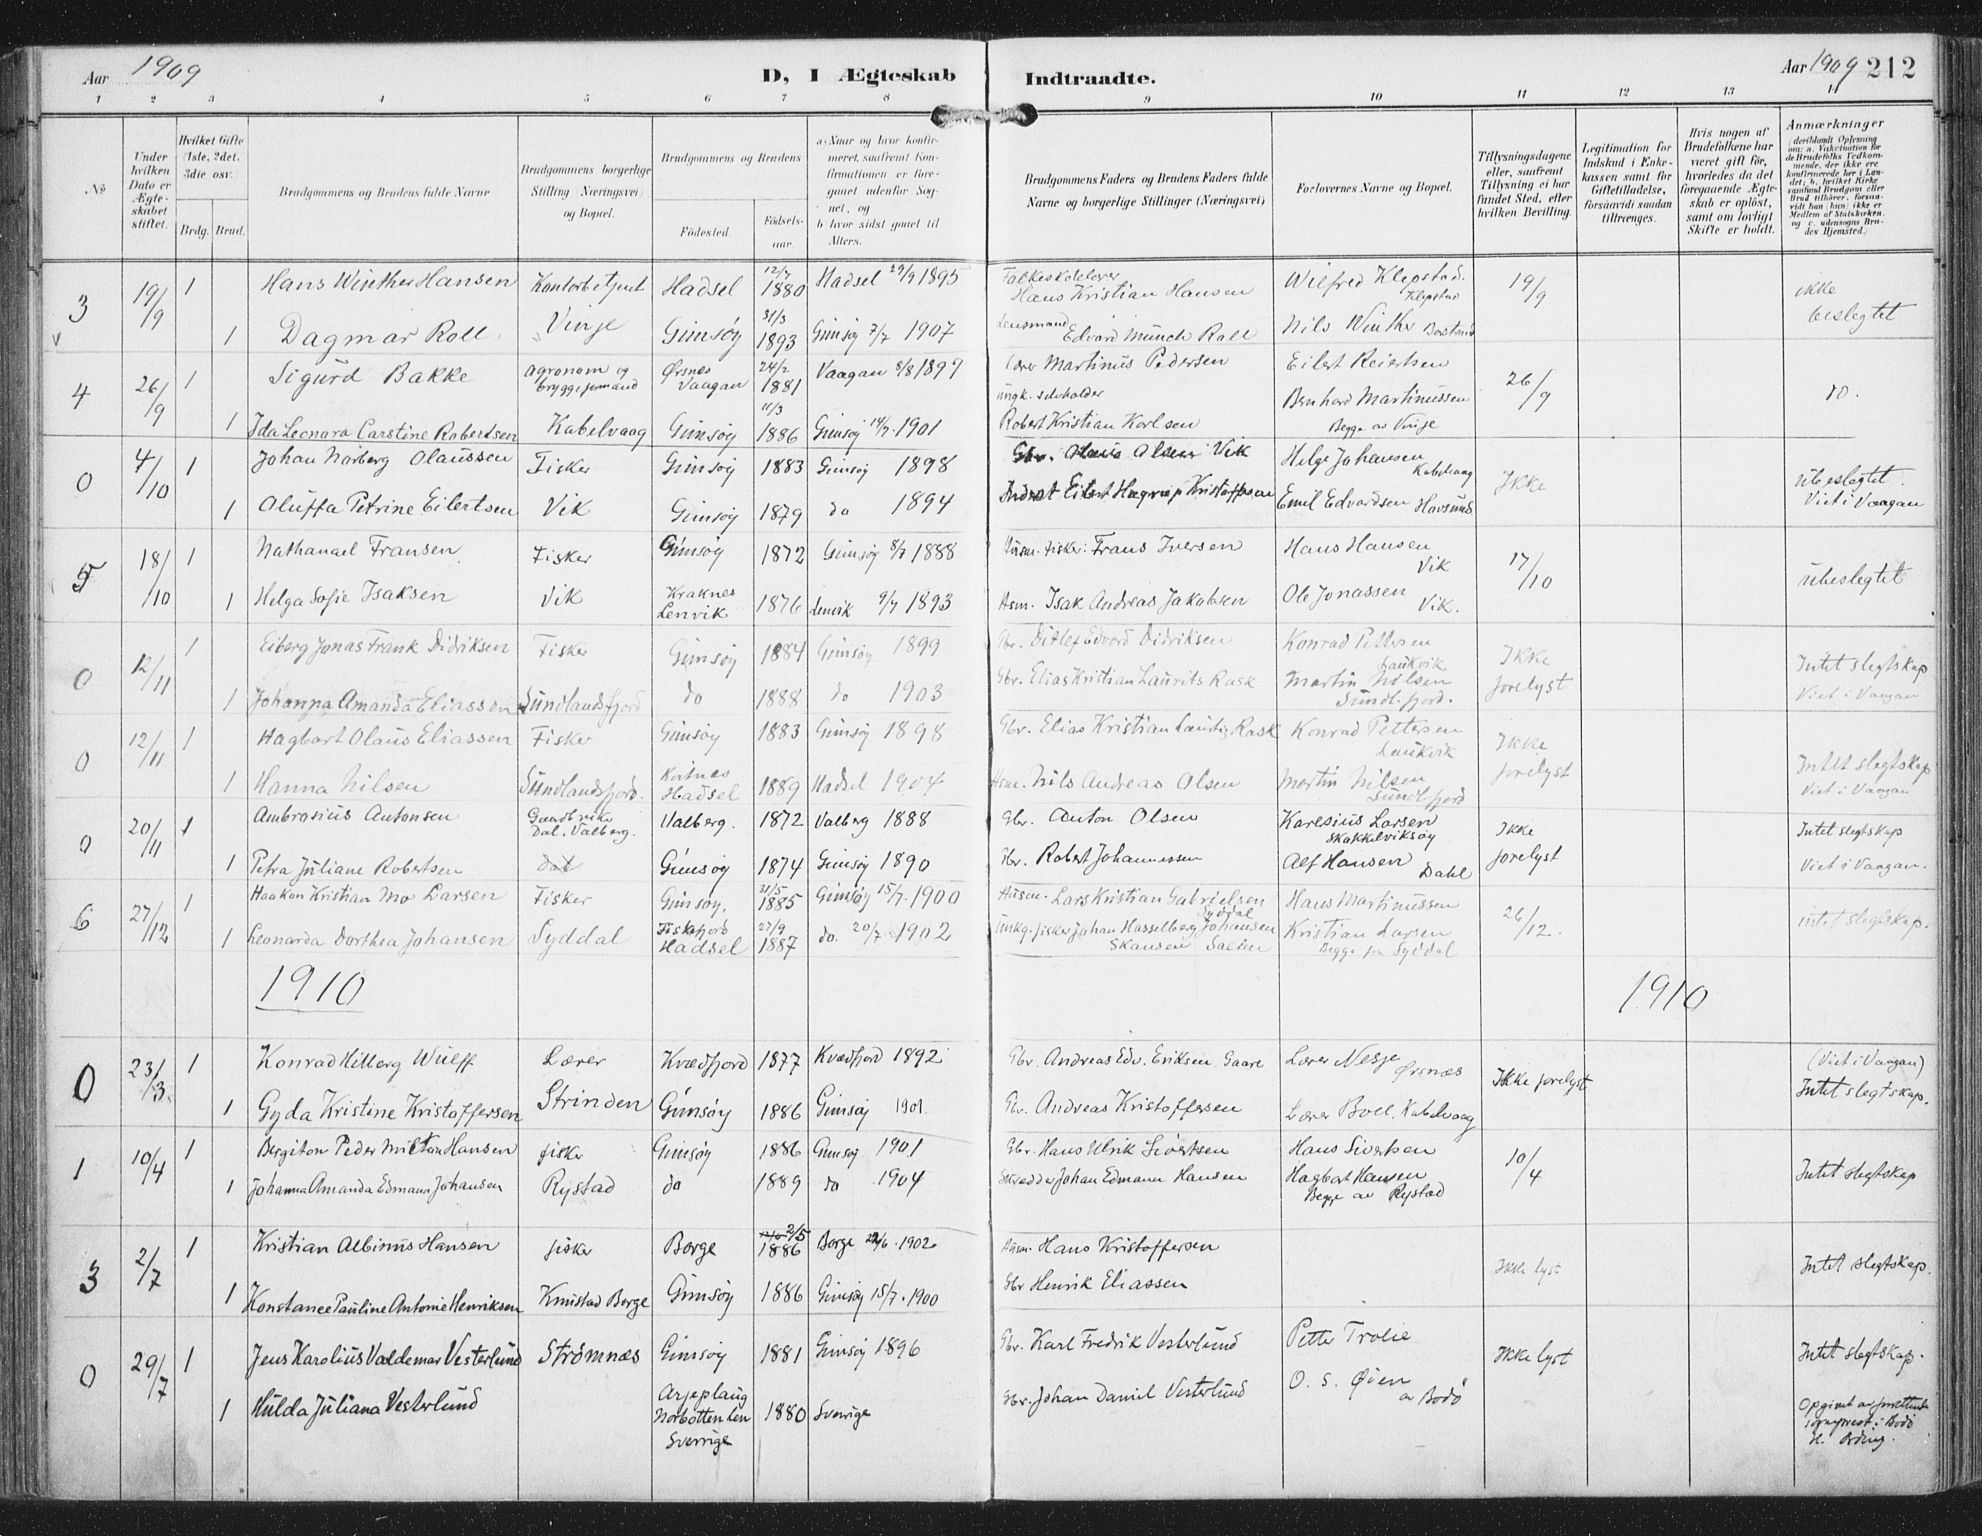 Aar 1909
D, I Ægteskab Indtraadte.
Aar 1909 212
1 2 3 4 5 6 7 8 9 10 11 12 13 14
No
Under hvilken Dato er Ægteskabet stiftet.
Hvilket Gifte (1ste, 2det, 3die osv.
Brdg. Brud.
Brudgommens og Brudens fulde Navne
Brudgommens borgerlige Stilling (Næringsvei) og Bopæl.
Brudgommens og Brudens
Födested.
Födselsaar.
a. Naar og hvor konfirmeret, saafremt Konfirmationen er foregaaet udenfor Sognet, og
b. hvor sidst gaaet til Alters.
Brudgommens Faders og Brudens Faders fulde Navne og borgerlige Stillinger (Næringsvei)
Forlovernes Navne og Bopæl.
Tillysningsdagene eller, saafremt Tillysning ei har fundet Sted, efter hvilken Bevilling.
Legitimation for Indskud i Enkekassen samt for Giftetilladelse, forsaavidt saadan tiltrænges.
Hvis nogen af Brudefolkene har været gift för, hvorledes da det foregaaende Ægteskab er oplöst, samt om lovligt Skifte er holdt.
Anmærkninger
(deriblandt Oplysning om: a. Vakcination for de Brudefolks Vedkommende, der ikke ere konfirmerede her i Landet; b. hvilket Kirkesamfund Brudgom eller Brud tilhörer, forsaavidt han (hun) ikke er Medlem af Statskirken, og c. udensogns Brudes Hjemsted.)
3 19/9 1 Hans Winther Hansen Kontorbetjent Hadsel 12/7 1880 Hadsel 29/9 1895 Folkeskolelærer Hans Kristian Hansen Wilfred Klepstad. Klepstad 19/9 ikke beslegtet
1 Dagmar Roll Vinje Gimsöy 31/3 1893 Gimsöy 7/7 1907 Lensmand Edvard Münch Roll Nils Winther
4 26/9 1 Sigurd Bakke Agronom og bryggeformand Ørsnes Vaagan 24/2 1881 Vaagan 8/8 1897 Martinus Pedersen Eilert Reiertsen 26/9 do.
1 Ida Leonora Carstine Robertsen Kabelvaag Gimsöy 11/3 1886 Gimsöy 14/7 1901 Robert Kristian Karlsen Bernhard Martinussen Begge av Vinje
0 4/10 1 Johan Norberg Olaussen Fisker Gimsöy 1883 Gimsöy 1898 Gbr. Olaus Olsen Vik Helge Johansen Kabelvaag Ikke ubeslegtet. Viet i Vaagan
1 Oluffa Petrine Eilertsen Vik Gimsöy 1879 do 1894 Eilert Hagrup Kristoffersen Emil Edvardsen Havsund
5 18/10 1 Nathanael Fransen Fisker Gimsöy 1872 Gimsöy 8/7 1888 Husm. Fisker: Frans Iversen Hans Hansen Vik 17/10 ubeslegtet
1 Helga Sofie Isaksen Vik Kraknes Lenvik 1876 Lenvik 9/7 1893 Hsm. Isak Andreas Jakobsen Ole Jonassen Vik.
0 12/11 1 Eiberg Jonas Frank Didriksen Fisker Gimsöy 1884 Gimsöy 1899 Gbr. Ditlef Edvard Didriksen Konrad Pettersen Laukvik Ikke forelyst Intet slegtskap Viet i Vaagan
1 Johanna Amanda Eliassen Sundlandsfjord do 1888 do 1903 Gbr. Elias Kristian Laurits Rask Martin Nilsen Sundl.fjord.
0 12/11 1 Hagbart Olaus Eliassen Fisker Gimsöy 1883 Gimsöy 1898 Gbr. Elias Kristian Lauritz Rask Konrad Pettersen Laukvik Ikke forelyst Intet slegtskap Viet i Vaagan
1 Hanna Nilsen Sundlandsfjord. Kvitnes Hadsel 1889 Hadsel 1904 Hsm. Nils Andreas Olsen Martin Nilsen Sundlfjord
0 20/11 1 Ambrosius Antonsen Gaardbruker Dal. Valberg. Valberg. 1872 Valberg 1888 Gbr. Anton Olsen Karelius Larsen Skokkelviksöy Ikke forelyst Intet slegtskap Viet i Vaagan.
1 Petra Juliane Robertsen Gimsöy 1874 Gimsöy 1890 Gbr. Robert Johannessen Alf Hansen Dahl
6 27/12 1 Haakon Kristian Mo Larsen Fisker Gimsöy. 31/5 1885 Gimsöy 15/7. 1900 Husm. Lars Kristian Gabrielsen Syddal Hans Martinussen 26/12. intet slegtskap.
1 Leonarda Dorthea Johansen Syddal Fiskefjord Hadsel 27/9 1887 do. 20/7 1902 Ungk. fisker Johan Hasselberg Johansen Skansen Kristian Larsen Begge fra Syddal
1910 1910
0 23/3. 1 Konrad Hilberg Wulff Lærer Kvædfjord 1877 Kvædfjord 1892 Gbr. Andreas Edv. Eriksen Gaare Lærer Nesje Ørsnæs Ikke forelyst (Viet i Vaagan) Intet slegtskap.
1 Gyda Kristine Kristoffersen Strinden Gimsöy 1886 Gimsöy 1901 Gbr. Andreas Kristoffersen Lærer Boll. Kabelvaag
1 10/4 1 Bergiton Peder Milton Hansen fisker Gimsöy 1886 Gimsöy 1901 Gbr. Hans Ulrik Sivertsen Hans Sivertsen 10/4 Intet slegtskap
1 Johanna Amanda Edmann Johansen Rystad do 1889 do 1904 Skredder Johan Edmann Hansen Hagbart Hansen Begge av Rystad
3 2/7 1 Kristian Albinus Hansen fisker Borge 2/5 1886 Borge 22/6. 1902 Husm. Hans Kristoffersen Ikke lyst Intet slegtskap.
1 Konstance Pauline Antonie Henriksen Knutstad Borge Gimsöy 1886 Gimsöy 15/7. 1900 Gbr Henrik Eliassen
0 29/7 1 Jens Karolius Valdemar Vesterlund Strömnæs Gimsöy 1881 Gimsöy 1896 Gbr. Karl Fredrik Vesterlund Petter Trolie Ikke lyst Intet slegtskap.
1 Hulda Juliana Vesterlund Arjeplaug Norbotten Len Sverrige 1880 Sverige Gbr. Johan Daniel Vesterlund O. S. Øien av Bodö Opgivet av sogneprest i Bodö